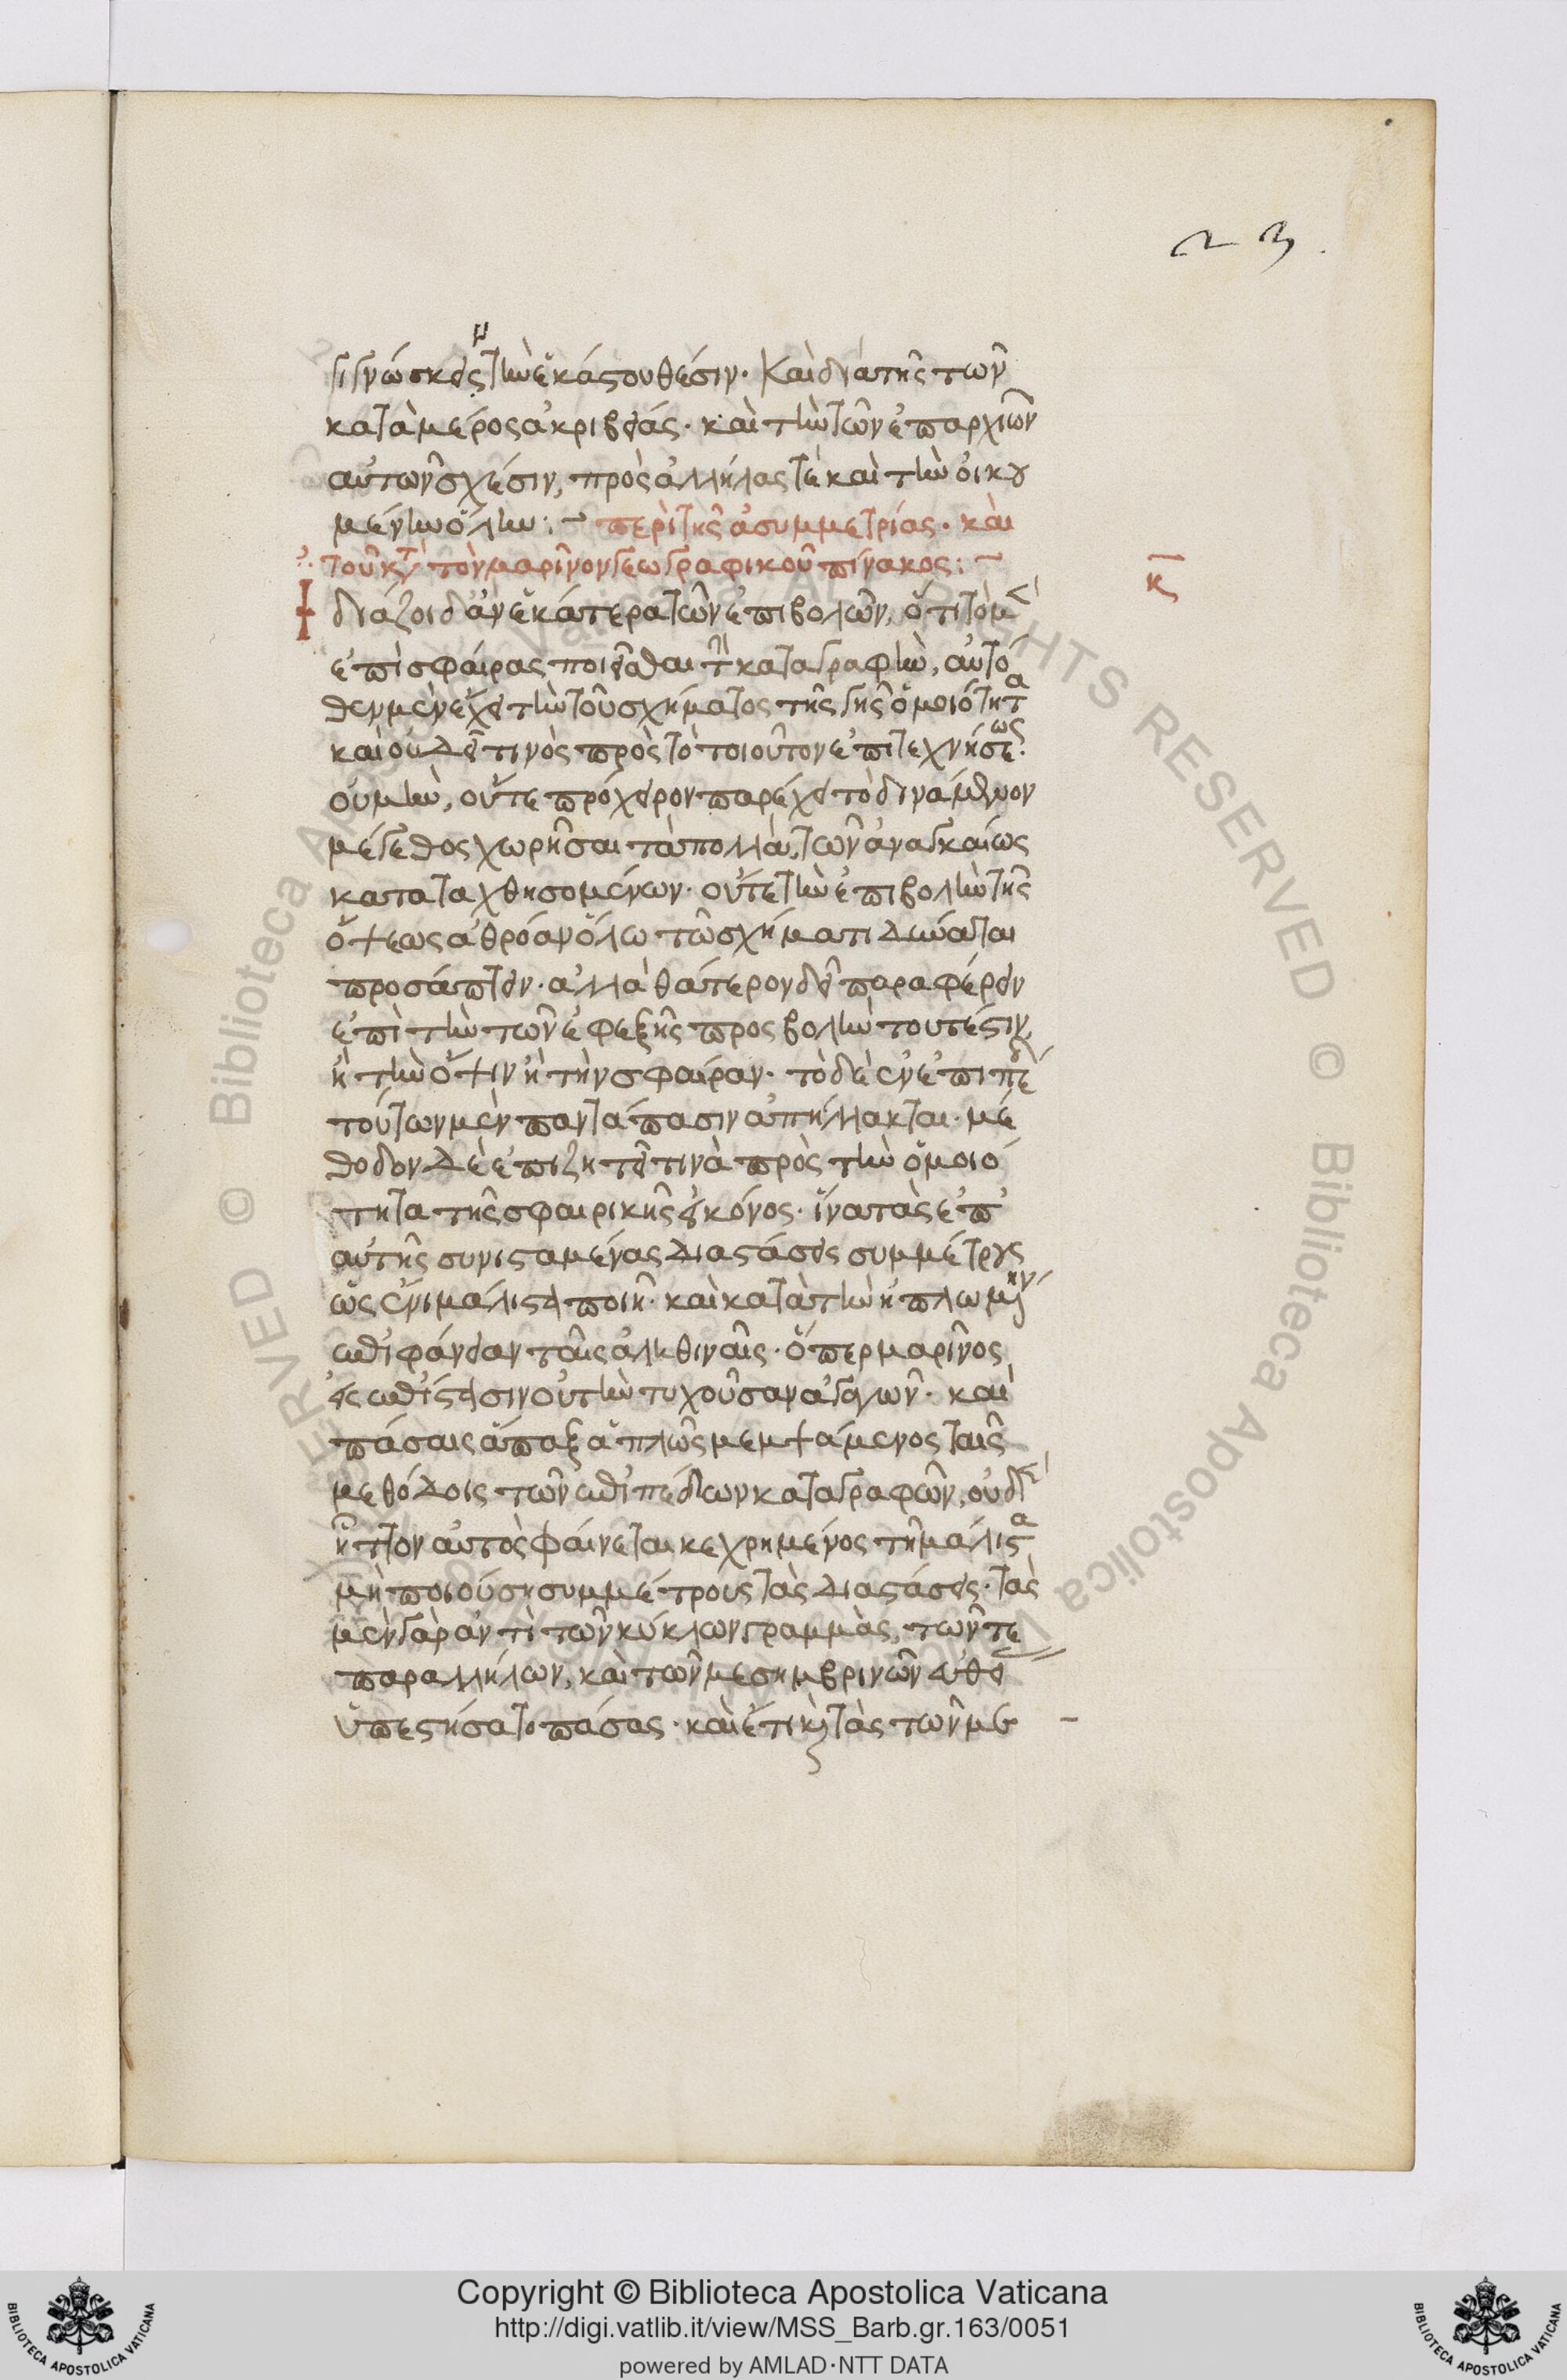 23.
γιγνώσκεις τὴν ἑκάστου θέσιν. Καὶ διὰ τῆς τῶν
κατὰ μέρος ἀκριβείας. καὶ τὴν τῶν ἐπαρχιῶν
αὐτῶν σχέσιν, πρὸς ἀλλήλας τὲ καὶ τὴν οἰκου
μένην ὅλην: ~ περὶ τῆς ἀσυμμετρίας. καὶ
τοῦ κατὰ τὸν μαρῖνον γεωγραφικοῦ πίνακος: ~
κ
Ἰδιάζοι δ' ἂν ἑκάτερα τῶν ἐπιβολῶν, ὅτι τὸ μὲν
ἐπὶ σφαίρας ποιεῖσθαι τὴν καταγραφὴν, αὐτό
θεν μὲν ἔχει τὴν τοῦ σχήματος τῆς γῆς ὁμοιότητα
καὶ οὐ δεῖ τινὸς πρὸς τὸ τοιοῦτον ἐπιτεχνήσεως.
οὐ μὴν, οὔτε πρόχειρον παρέχει τὸ δυνάμενον
μέγεθος χωρῆσαι τὰ πολλὰ, τῶν ἀναγκαίως
καταταχθησομένων. οὔτε τὴν ἐπιβολὴν τῆς
ὄψεως ἀθρόαν ὅλω τῶ σχήματι δύναται
προσάπτειν. ἀλλὰ θάτερον δεῖ παραφέρειν
ἐπὶ τὴν τῶν ἐφεξῆς προςβολὴν τουτέστιν,
ἢ τὴν ὄψιν ἢ τὴν σφαῖραν. τὸ δὲ ἐν ἐπιπέδω
τούτων μὲν παντάπασιν ἀπήλλακται. μέ
θοδον δὲ ἐπιζητεῖ τινὰ πρὸς τὴν ὁμοιό
τητα τῆς σφαιρικῆς εἰκόνος. ἵνα τὰς ἐπ'
αὐτῆς συνισταμένας διαστάσεις συμμέτρους
ὡς ἔνι μάλιστα ποιῆ. καὶ κατὰ τὴν ἡπλωμένην
ἐπιφάνειαν ταῖς ἀληθιναῖς. ὅπερ μαρῖνος
εἰς ἐπίστασιν οὐ τὴν τυχοῦσαν ἀγαγὼν. καὶ
πάσαις ἅπαξ ἁπλῶς μεμψάμενος ταῖς
μεθόδοις τῶν ἐπιπέδων καταγραφῶν, οὐδὲν
ἧττον αὐτὸς φαίνεται κεχρημένος τῆ μάλιστα
μὴ ποιούση συμμέτρους τὰς διαστάσεις. τὰς
μὲν γὰρ ἀντὶ τῶν κύκλων γραμμὰς, τῶν τε
παραλλήλων, καὶ τῶν μεσημβρινῶν εὐθείας
ὑπεστήσατο πάσας. καὶ ἔτι καὶ τὰς τῶν με
Copyright © Biblioteca Apostolica Vaticana
http://digi.vatlib.it/view/MSS_Barb.gr.163/0051
powered by AMLAD·NTT DATA